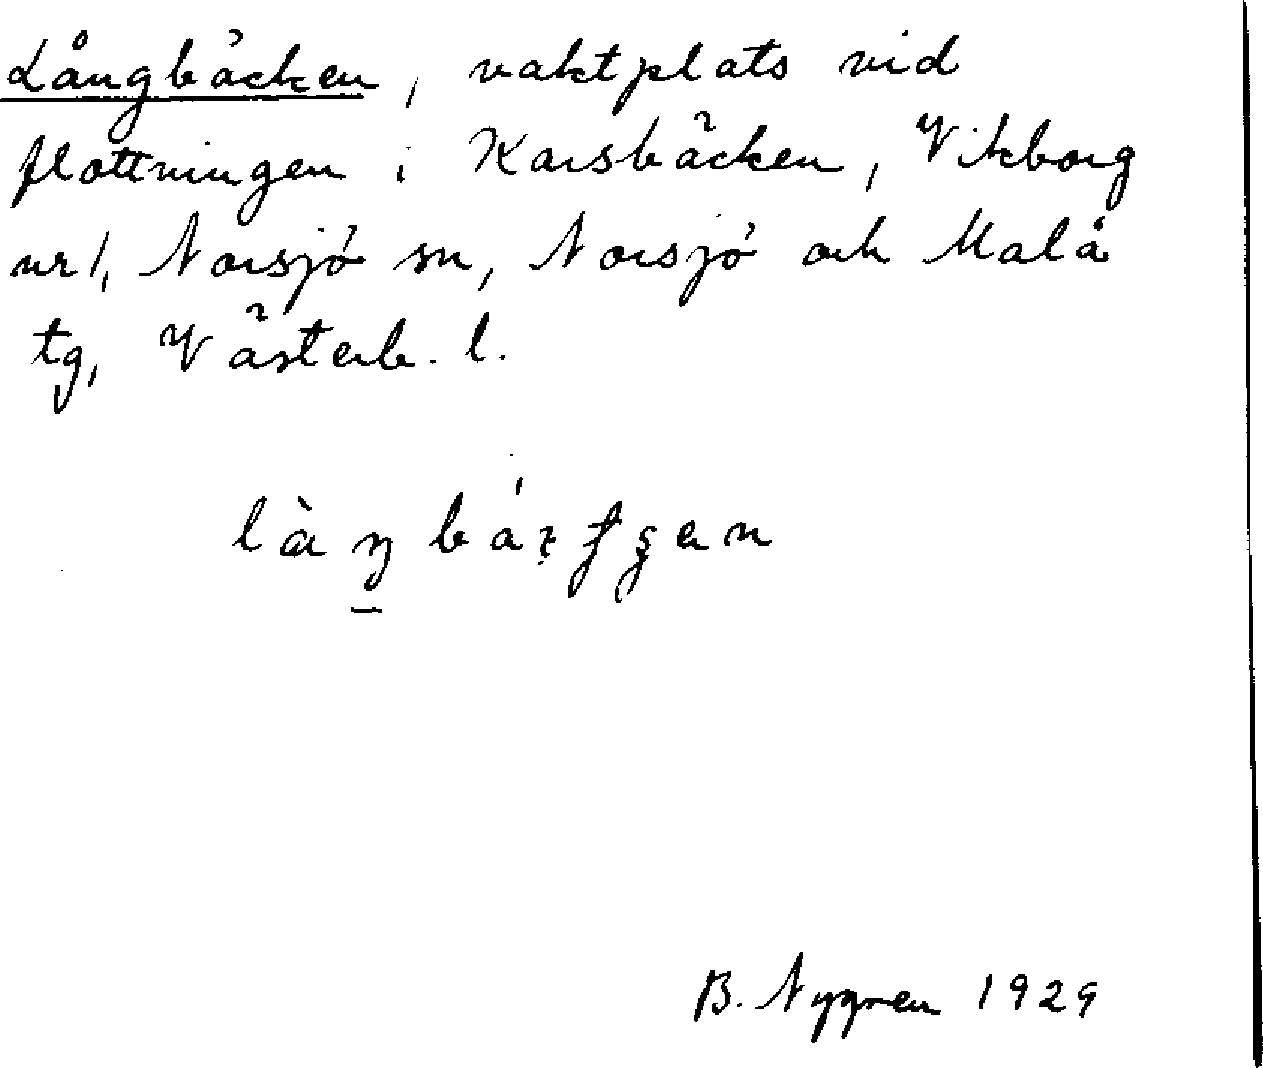 Långbäcken, vaktplats vid
flottningen i Karsbäcken, Vikborg
nr 1, Norsjö sn, Norsjö och Malå
tg, Västerb. l.
B. Nygren 1929